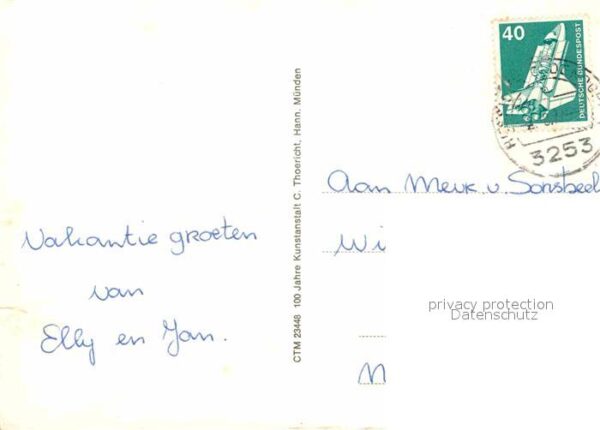 40
DEUTSCHE BUNDESPOST
3253
Vakantie groeten
van
Elly en Jan.
CTM 23448 100 Jahre Kunstanstalt C. Thoericht, Hann. Münden
Aan Meuk v. Sonsbeek
Wi
M
privacy protection
Datenschutz